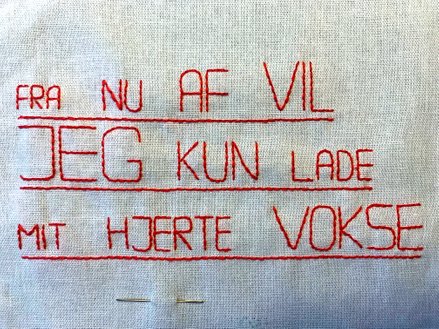 FRA NU AF VIL
JEG KUN LADE
MIT HJERTE VOKSE